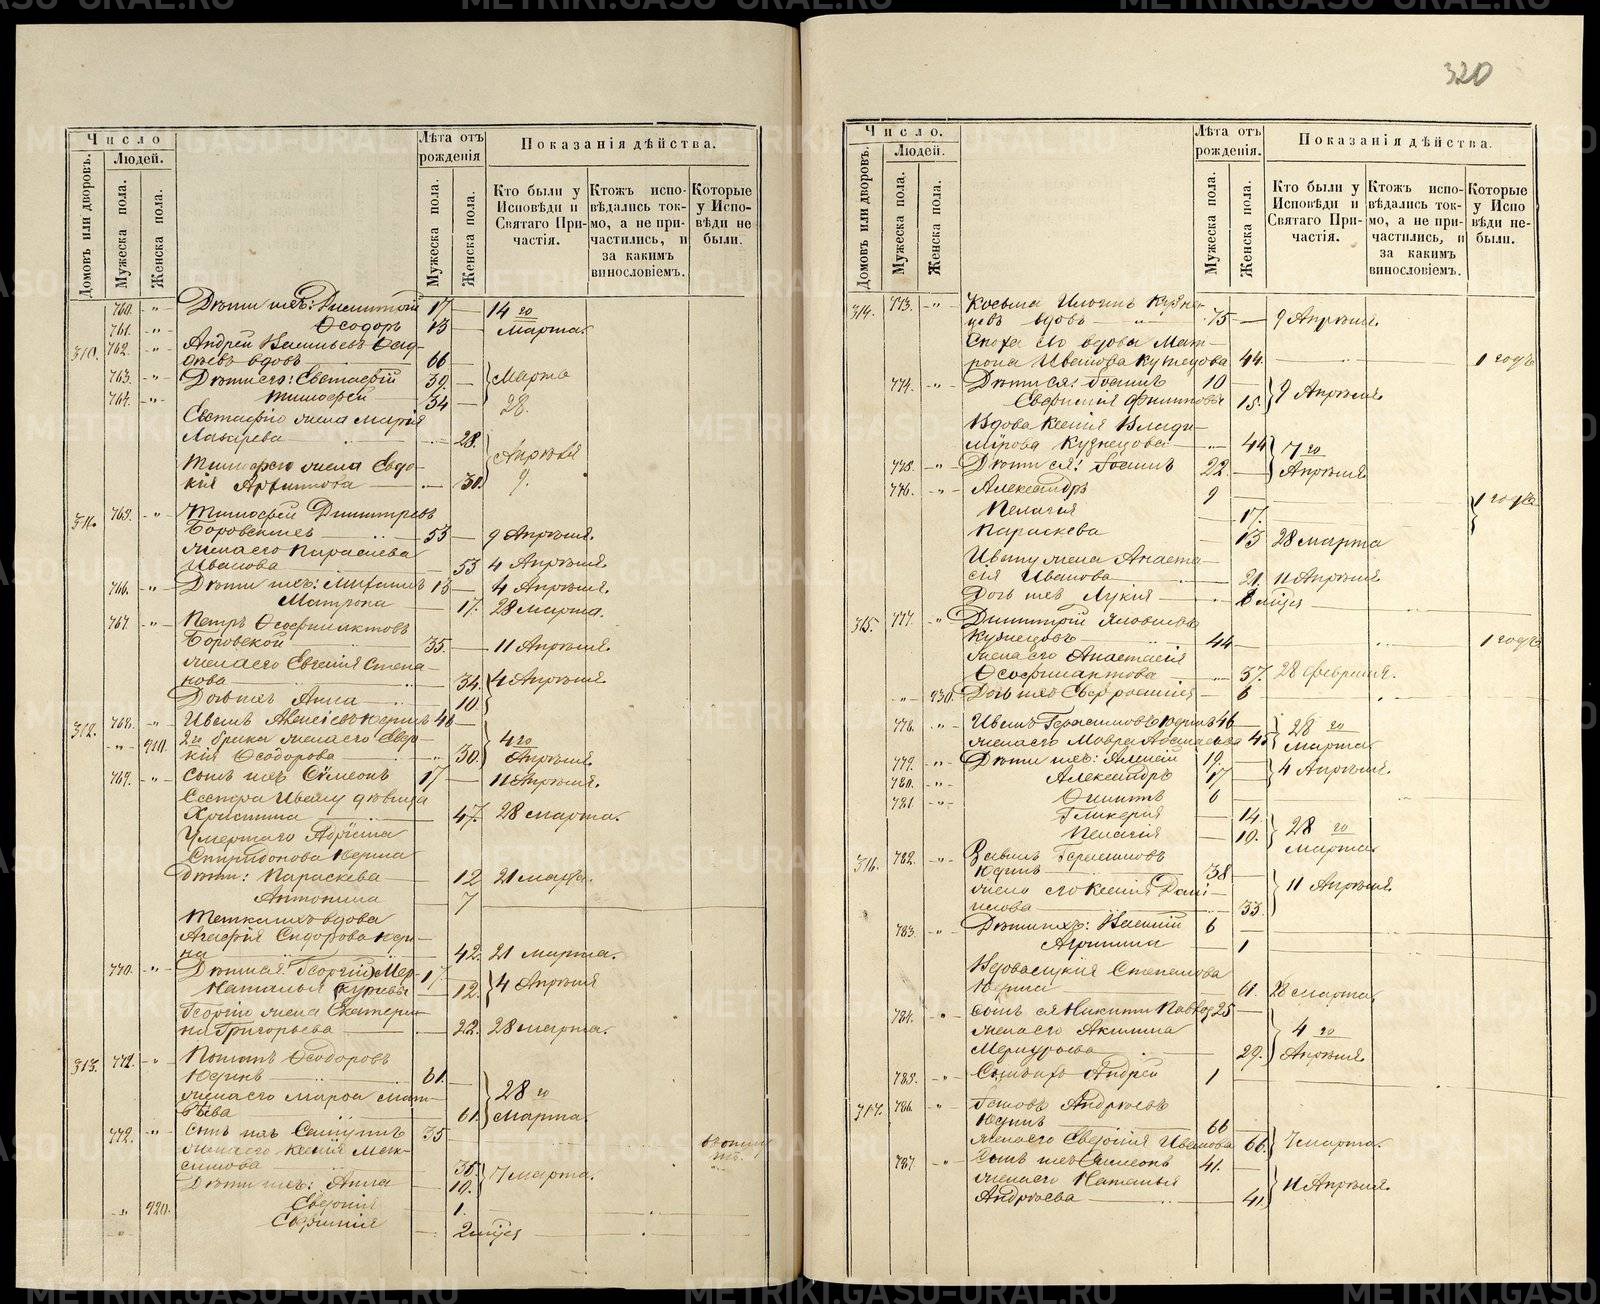 320
Число
Людей.
Домовъ или дворовъ.
Мужеска пола.
Женска пола.
Лѣта отъ рожденія
Мужеска пола.
Женска пола.
Показанія дѣйства.
Кто были у Исповѣди и Святаго Причастія.
Ктожъ исповѣдались токмо, а не причастились, и за какимъ винословіемъ.
Которые у Исповѣди не были.
760. -"- Дѣти ихъ: Димитрій 17 14 го
761. -"- Ѳеодоръ 13 Марта.
310. 762. -"- Андрей Васильевъ
вдовъ 66
763. -"- Дѣти его: Евстафій 39. Марта
764. -"- Тимофей 34 28.
Евстафія жена Марія
Лазарева 28. Апрѣля
Тимофея жена Евдо-
кія 30. 9.
311. 765. -"- Тимофей Димитріевъ
Боровскихъ 53 9 Апрѣля.
жена его Параскева
Иванова 53 4 Апрѣля.
766. -"- Дѣти ихъ: Михаилъ 13 4 Апрѣля.
Матрона 17. 28 Марта.
767. -"- Петръ Ѳеофилактовъ
Боровской 35. 11 Апрѣля.
жена его Евгенія Степа-
нова 34. 4 Апрѣля.
Дочь ихъ Анна 10
312. 768. -"- Иванъ Алексѣевъ Юдинъ 46
-"- 910. 2го брака жена его Евдо- 4 го
кія Ѳеодорова 30. Апрѣля.
769. -"- Сынъ ихъ Симеонъ 17 11 Апрѣля.
Сестра Ивану дѣвица
Христина 47. 28 Марта.
Умершаго
Спиридонова Юдина
дѣти: Параскева 12 21 Марта.
Антонина 7
вдова
Агафія Сидорова Юди-
на 42. 21 Марта.
770. -"- Дѣти ея: Георгій 17.
Наталья 12. 4 Апрѣля
Георгія жена Екатери-
на Григорьева 22. 28 Марта.
313. 771. -"- Потапъ Ѳеодоровъ
Юдинъ 61. 28 го
жена его Марѳа Мат-
вѣева 61. Марта.
772. -"- Сынъ ихъ 35
жена его Ксенія Мак-
симова 35. 7 Марта.
Дѣти ихъ: Анна 10.
-"- 920. Евдокія 1.
2 мѣся
Число.
Людей.
Домовъ или дворовъ.
Мужеска пола.
Женска пола.
Лѣта отъ рожденія.
Мужеска пола.
Женска пола.
Показанія дѣйства.
Кто были у Исповѣди и Святаго Причастія.
Ктожъ исповѣдались токмо, а не причастились, и за какимъ винословіемъ.
Которые у Исповѣди небыли.
314. 773. -"- Косьма Ильинъ Кузне-
цовъ вдовъ 75 9 Апрѣля.
Сноха его вдова Мат-
рона Иванова Кузнецова 44. 1 годъ
774. -"- Дѣти ея: 10
Евфимія Филиппова 15. 9 Апрѣля.
Вдова Ксенія Влади-
мірова Кузнецова 44 7 го
775. -"- Дѣти ея: 22. Апрѣля.
776. -"- Александръ 9
Пелагія 17. 1 годъ
Параскева 13 28 Марта
жена Анаста-
сія Иванова 21. 11 Апрѣля.
Дочь ихъ Лукія мѣся
315. 777. -"- Димитрій Яковлевъ
Кузнецовъ 44 1 годъ
жена его Анастасія
Ѳеофилактова 37. 28 Февраля.
-"- 930. Дочь ихъ Евфросинія 6
778. -"- Иванъ Герасимовъ Юдинъ 46 28 го
жена его Мавра 45 Марта.
779. -"- Дѣти ихъ: Алексѣй 19.
780. -"- Александръ 17 4 Апрѣля.
781 -"- 6
Гликерія 14.
Пелагія 10. 28 го Марта.
316. 782. -"- Герасимовъ
Юдинъ 38
жена его Ксенія Дани-
лова 33. 11 Апрѣля.
783. -"- Дѣти ихъ: Василій 6
Агрипина 1
Вдова Степанова
Юдина 61. 28 Марта.
784. -"- Сынъ ея Никита 25
жена его Акилина 4 го
Меркурьева 29. Апрѣля.
785. -"- Сынъ ихъ Андрей 1
317. 786. -"- Андреевъ
Юдинъ 66
жена его Евдокія Иванова 66. 7 Марта.
787. -"- Сынъ ихъ Симеонъ 41.
жена его Наталья 11 Апрѣля.
Андреева 41.
METRIKI.GASO-URAL.RU